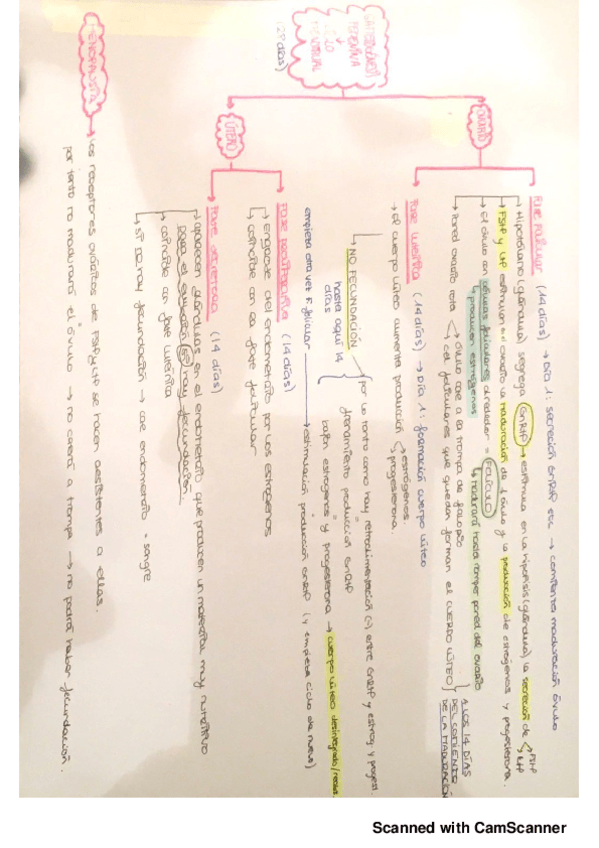 GAMETOGÉNESIS
FEMENINA
↓
CICLO
MENSTRUAL
(28 días)
OVARIO
FASE FOLICULAR (14 días) → DÍA 1: secreción GnRH etc → comienza maduración óvulo
→ Hipotálamo (glándula) segrega GnRH → estimula en la hipófisis (glándula) la secreción de < FSH
LH
→ FSH y LH estimulan en el ovario la maduración de 1 óvulo y la producción de estrógenos y progesterona.
→ el óvulo con células foliculares alrededor = FOLÍCULO
↳ producen estrógenos
↳ madurará hasta romper pared del ovario
→ Pared ovario rota < óvulo cae a la trompa de falopio
cel foliculares que quedan forman el CUERPO LÚTEO
A LOS 14 DÍAS
DEL COMIENZO
DE LA MADURACIÓN
FASE LUTEÍNICA (14 días) → DÍA 1: formación cuerpo lúteo
→ el cuerpo lúteo aumenta producción < estrógenos
progesterona.
→ NO FECUNDACIÓN → por lo tanto como hay retroalimentación (-) entre GnRH y estróg y progest.
hasta aquí 14
días
bajan estrógenos y progesterona → cuerpo lúteo desintegrado
empieza otra vez F. folicular → estimulación producción GnRH (y empieza ciclo de nuevo)
ÚTERO
FASE PROLIFERATIVA (14 días)
→ engrose del endometrio por los estrógenos
→ coincide con la fase folicular
FASE SECRETORA (14 días)
→ aparecen glándulas en el endometrio que producen un material muy nutritivo
para el embrión (SI) hay fecundación.
→ coincide con fase luteínica
→ si no hay fecundación → cae endometrio + sangre
MENOPAUSIA → los receptores ováricos de FSH y LH se hacen resistentes a ellas.
por tanto no madurará el óvulo → no caerá a trompa → no podrá haber fecundación.
Scanned with CamScanner